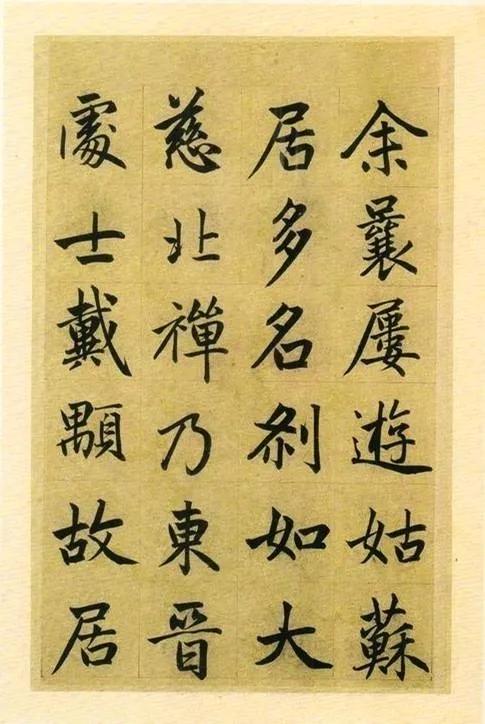 余曩屡遊姑蘇
居多名刹如大
慈北禪乃東晉
處士戴顒故居